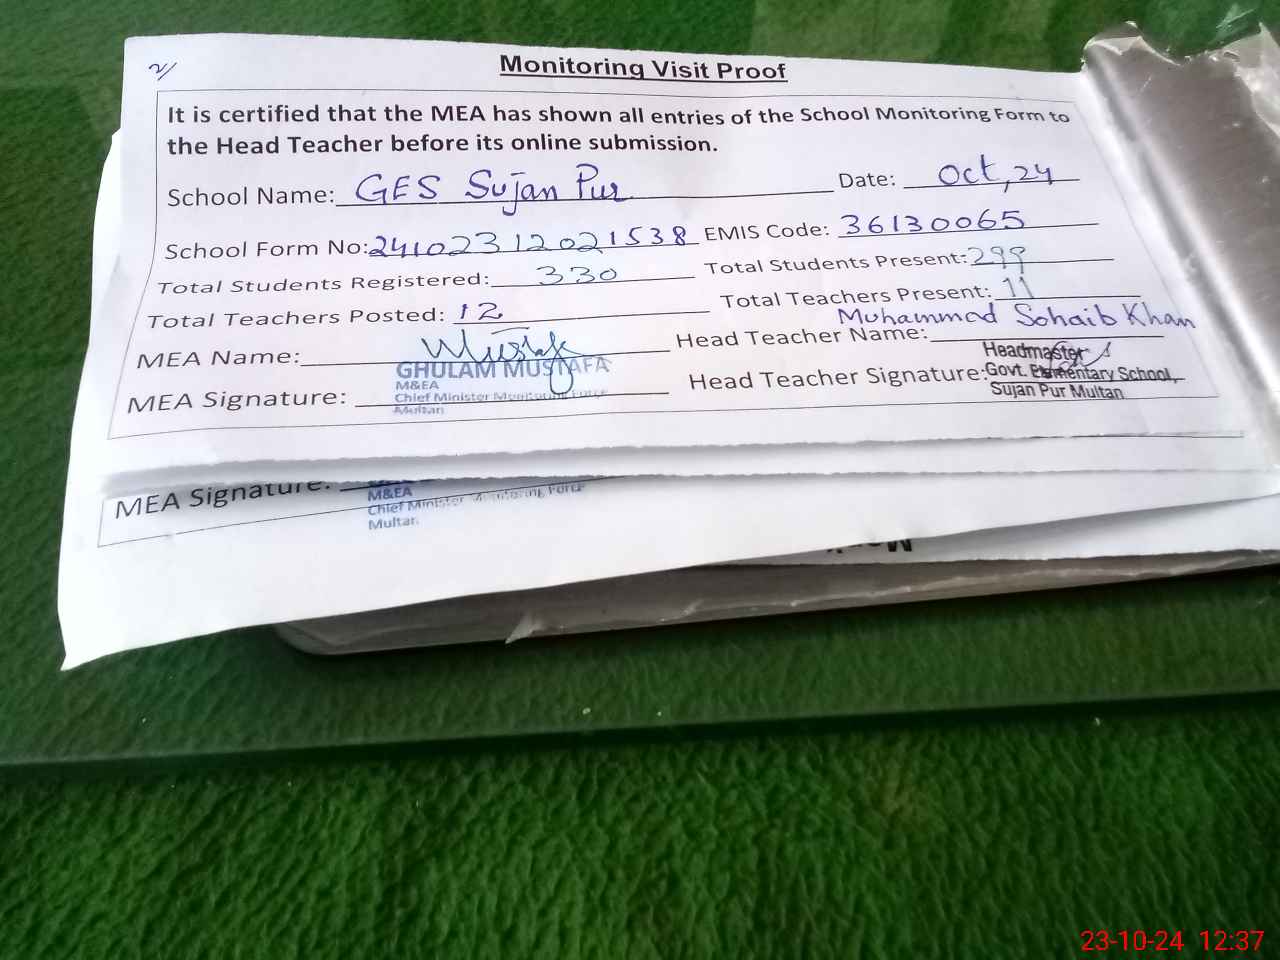 2/
Monitoring Visit Proof
It is certified that the MEA has shown all entries of the School Monitoring Form to
the Head Teacher before its online submission.
School Name: GES Sujan Pur Date: Oct, 24
School Form No: 24102312021538 EMIS Code: 36130065
Total Students Registered: 330 Total Students Present: 299
Total Teachers Posted: 12 Total Teachers Present: 11
MEA Name: Mustafa Head Teacher Name: Muhammad Sohaib Khan
GHULAM MUSTAFA
M&EA
Chief Minister Monitoring Force
Multan
MEA Signature: Head Teacher Signature:
Headmaster
Govt. Elementary School,
Sujan Pur Multan
MEA Signature:
M&EA
Chief Minister Monitoring Force
Multan
23-10-24 12:37